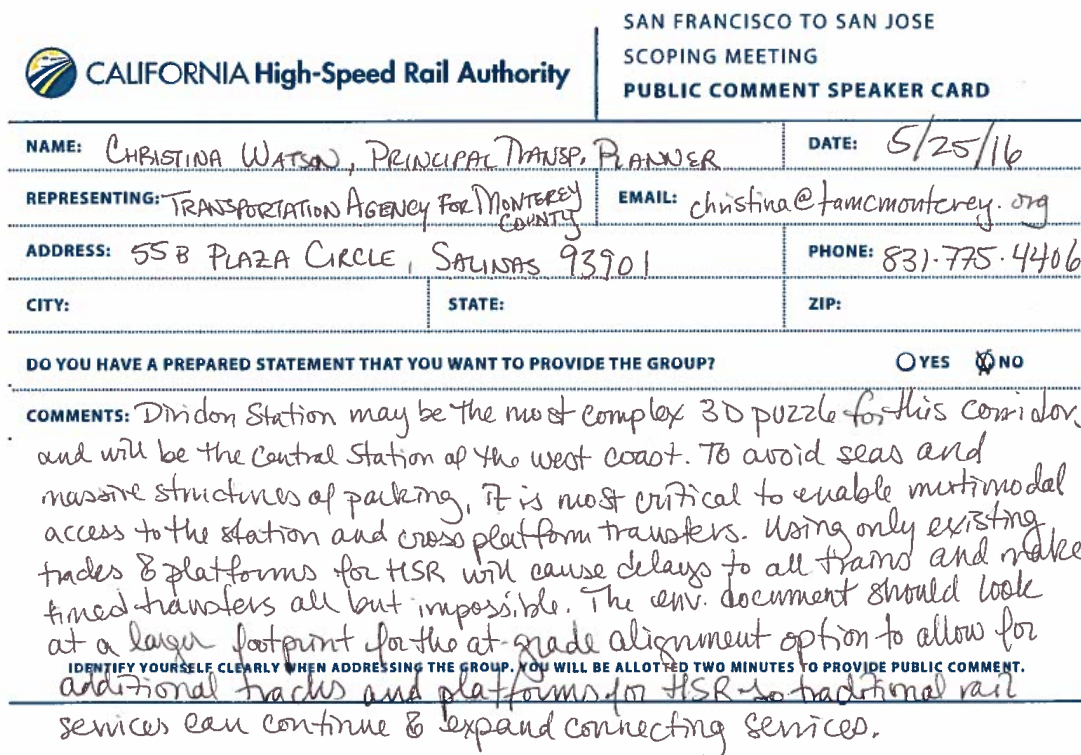 CALIFORNIA High-Speed Rail Authority
SAN FRANCISCO TO SAN JOSE
SCOPING MEETING
PUBLIC COMMENT SPEAKER CARD
NAME: CHRISTINA WATSON, PRINCIPAL TRANSP. PLANNER
DATE: 5/25/16
REPRESENTING: TRANSPORTATION AGENCY FOR MONTEREY COUNTY
EMAIL: christina@tamcmonterey.org
ADDRESS: 55 B PLAZA CIRCLE, SALINAS 93901
PHONE: 831-775-4406
CITY:
STATE:
ZIP:
DO YOU HAVE A PREPARED STATEMENT THAT YOU WANT TO PROVIDE THE GROUP? YES NO
COMMENTS: Diridon Station may be the most complex 3D puzzle for this corridor,
and will be the Central Station of the west coast. To avoid seas and
massive structures of parking, it is most critical to enable multimodal
access to the station and cross platform transfers. Using only existing
tracks & platforms for HSR will cause delays to all trains and make
timed transfers all but impossible. The env. document should look
at a larger footprint for the at-grade alignment option to allow for
IDENTIFY YOURSELF CLEARLY WHEN ADDRESSING THE GROUP. YOU WILL BE ALLOTTED TWO MINUTES TO PROVIDE PUBLIC COMMENT.
additional tracks and platforms for HSR so traditional rail
services can continue & expand connecting services.